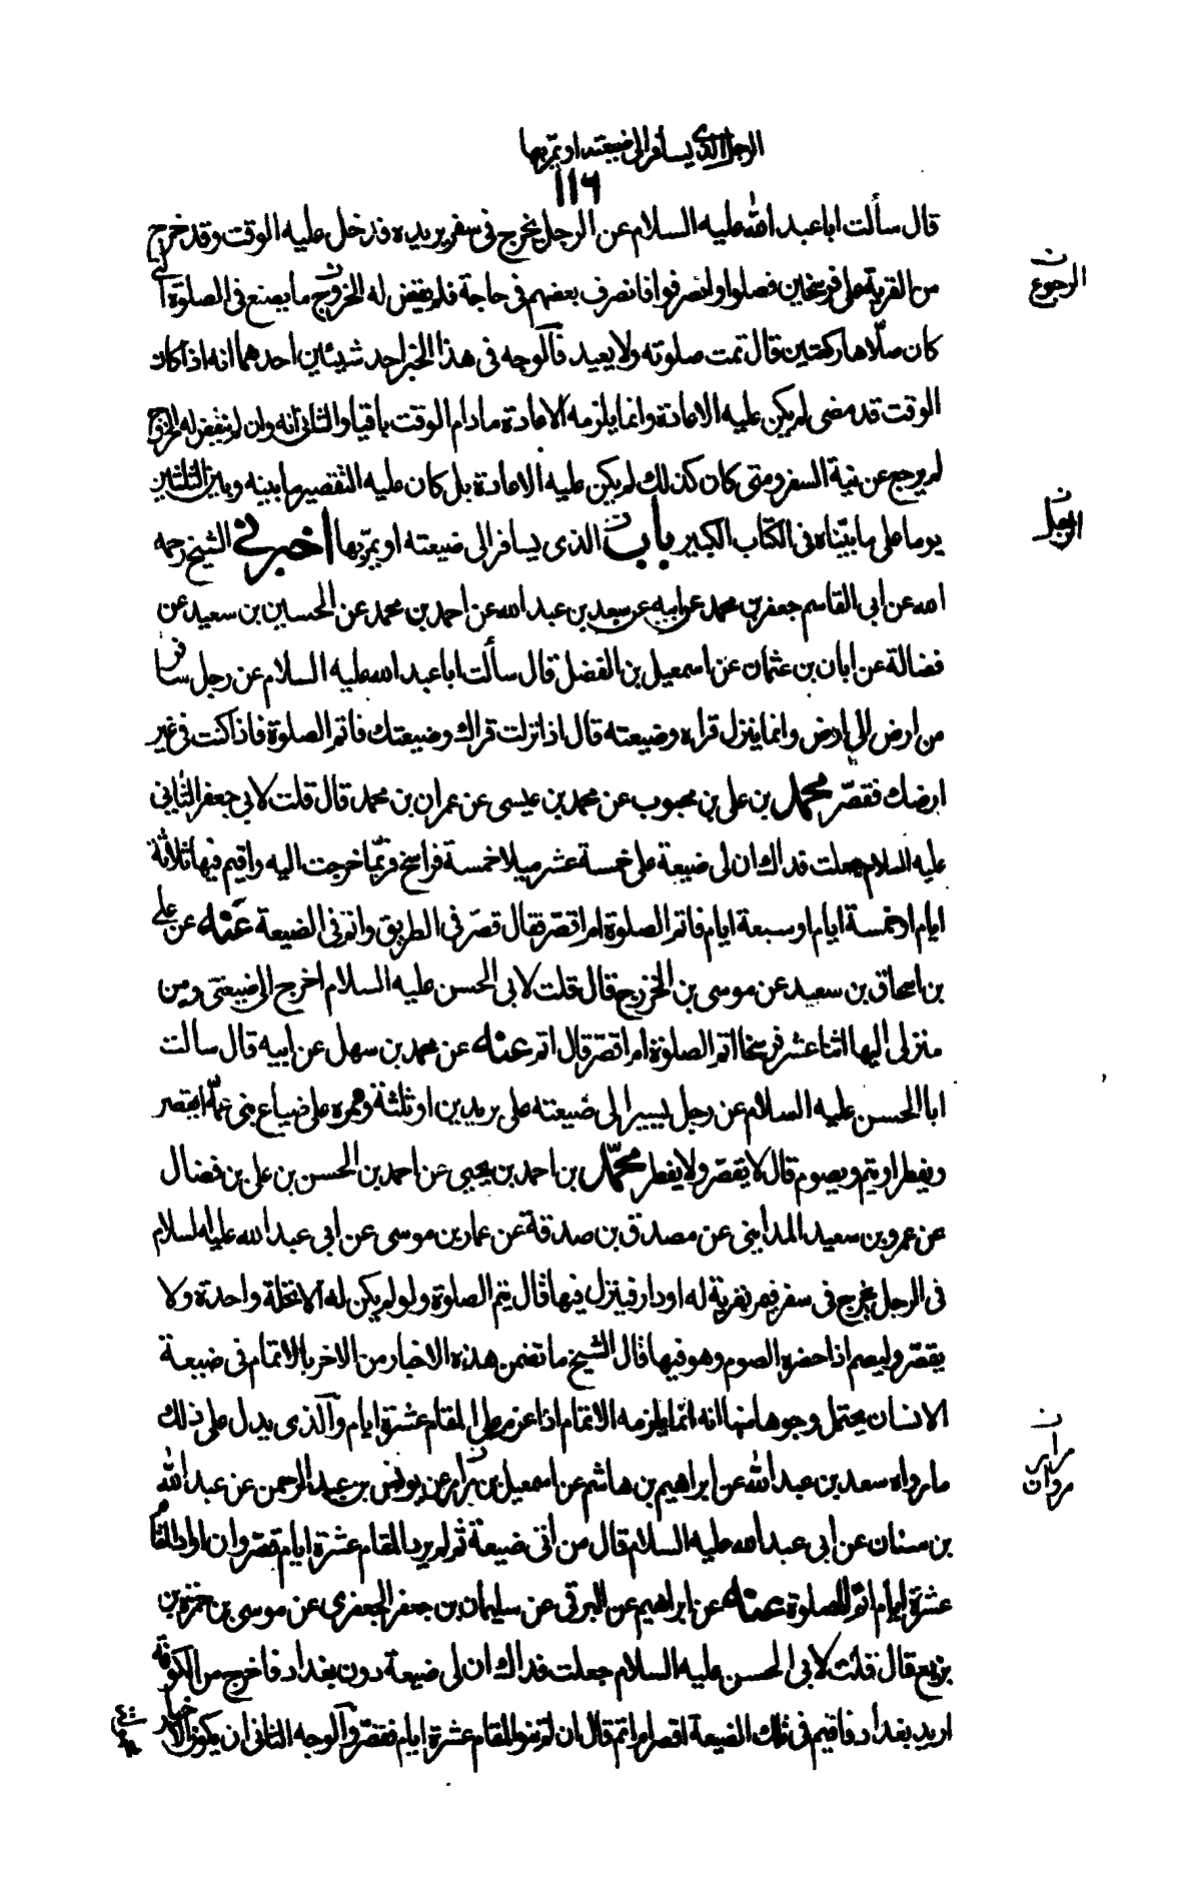 الرجل الذى يسافر الى ضيعته او يمر بها
١١٦
قال سألت ابا عبد الله عليه السلام عن الرجل يخرج فى سفر يريده فدخل عليه الوقت وقد خرج
من القرية على فرسخين فصلوا وانصرفوا فانصرف بعضهم فى حاجة فلم يقض له الخروج ما يصنع فى الصلوة التى
الرجوع
كان صلّاها ركعتين قال تمت صلوته ولا يعيد فالوجه فى هذا الخبر احد شيئين احدهما انه اذا كان
الوقت قد مضى لم يكن عليه الاعادة وانما يلزمه الاعادة ما دام الوقت باقيا والثانى انه وان لم يقض له الخروج
لم يرجع عن نية السفر ومتى كان كذلك لم يكن عليه الاعادة بل كان عليه التقصير ما بينه وبين الثلثين
يوما على ما بيّناه فى الكتاب الكبير باب الذى يسافر الى ضيعته او يمرّ بها اخبرنى الشيخ رحمه
الرجل
الله عن ابى القاسم جعفر بن محمد عن ابيه عن سعد بن عبد الله عن احمد بن محمد عن الحسين بن سعيد عن
فضالة عن ابان بن عثمان عن اسمعيل بن الفضل قال سألت ابا عبد الله عليه السلام عن رجل سافر
من ارض الى ارض وانما ينزل قراه وضيعته قال اذا نزلت قراك وضيعتك فاتم الصلوة فاذا كنت فى غير
ارضك فقصّر محمد بن على بن محبوب عن محمد بن عيسى عن عمران بن محمد قال قلت لابى جعفر الثانى
عليه السلام جعلت فداك ان لى ضيعة على خمسة عشر ميلا خمسة فراسخ فربّما خرجت اليه واقيم فيها ثلاثة
ايام او خمسة ايام او سبعة ايام فاتم الصلوة ام اقصّر فقال قصّر فى الطريق واتم فى الضيعة عنه عن على
بن اسحاق بن سعيد عن موسى بن الخزرج قال قلت لابى الحسن عليه السلام اخرج الى ضيعتى ومن
منزلى اليها اثنا عشر فرسخا اتم الصلوة ام اقصّر قال اتم عنه عن محمد بن سهل عن ابيه قال سالت
ابا الحسن عليه السلام عن رجل يسير الى ضيعته على بريدين او ثلثة وممره على ضياع بنى عمّه ايقصر
ويفطر او يتم ويصوم قال لا يقصّر ولا يفطر محمّد بن احمد بن يحيى عن احمد بن الحسن بن على بن فضال
عن عمرو بن سعيد المداينى عن مصدق بن صدقة عن عمار بن موسى عن ابى عبد الله عليه السلام
فى الرجل يخرج فى سفر فيمر بقرية له او دار فينزل فيها قال يتم الصلوة ولو لم يكن له الا نخلة واحدة ولا
يقصّر وليصم اذا حضره الصوم وهو فيها قال الشيخ ما تضمن هذه الاخبار من الاخر بالاتمام فى ضيعة
الانسان يحتمل وجوها منها انه انّما يلزمه الاتمام اذا عزم على المقام عشرة ايام والذى يدل على ذلك
ما رواه سعد بن عبد الله عن ابراهيم بن هاشم عن اسمعيل بن مرار عن يونس بن عبد الرحمن عن عبد الله
مرار
مروان
بن سنان عن ابى عبد الله عليه السلام قال من اتى ضيعة ثم لم يرد المقام عشرة ايام قصّر وان اراد المقام
عشرة ايام اتمّ الصلوة عنه عن ابراهيم عن البرقى عن سليمان بن جعفر الجعفرى عن موسى بن حمزة بن
بزيع قال قلت لابى الحسن عليه السلام جعلت فداك ان لى ضيعة دون بغداد فاخرج من الكوفة
اريد بغداد فاقيم فى تلك الضيعة اقصر ام اتم قال ان لم تنو المقام عشرة ايام فقصّر والوجه الثانى ان يكون الاخبار